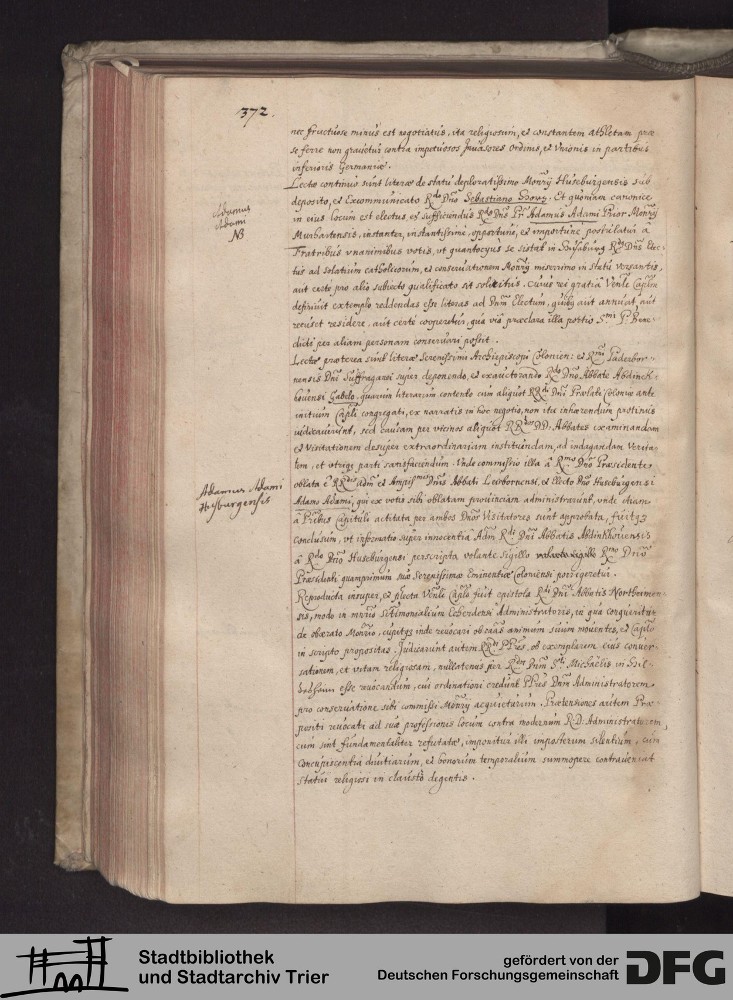 372.
nec fructuose minus est negotiatus, ita religiosum, et constantem athletam præ
se ferre non gravetur contra impetuosos Invasores Ordinis, et Unionis in partibus
inferioris Germaniæ.
Lectæ continuo sunt literæ de statu deploratissimo Monrÿ Huseburgensis sub
deposito, et Excommunicato Rdo Dno Sebastiano Et quoniam canonice
in eius locum est electus, et sufficiendus Rdus Dnus Pr Adamus Adami Prior Monrÿ
Adamus
Adami
NB
Murhartensis, instanter, instantissime, opportune, et importune postulatur a
Fratribus unanimibus votis, ut quantocyus se sistat in Rdus Dnus Elec-
tus ad solatium catholicorum, et conservationem Monrÿ miserrimo in statu versantis,
aut certe pro alio subiecto qualificato sit solicitus. Cuius rei gratia Venle Caplm
definivit extemplo reddendas esse literas ad Dnum Electum, quibus aut annuat, aut
recuset residere, aut certe cooperetur, qua via præclara illa portio Smi P. Bene-
dicti per aliam personam conservari possit.
Lectæ præterea sunt literæ Serenissimi Archiepiscopi Colonien: et Rmi Paderbor-
nensis Dni Suffraganei super deponendo, et exauctorando Rdo Dno Abbate Abdinck-
hovensi Gabelo, quarum literarum contento cum aliquot RRdi Dni Prælati Coloniæ ante
initium Capli congregati, ex narratis in hoc negotio, non ita inhærendum protinus
iudicaverint, sed causam per vicinos aliquot RRdos DD. Abbates examinandam
et Visitationem desuper extraordinariam instituendam, ad indagandam Verita-
tem, et utrique parti satisfaciendum. Unde commissio illa â Rmo Dno Præsidente
oblata ê RRdis adm et Amplissmis Dnis Abbati et Electo Dno Huseburgensi
Adamus Adami
Husburgensis
Adamo Adami, qui ex votis sibi oblatam provinciam administrarunt, unde etiam
â Pribus Capituli actitata per ambos Dnos Visitatores sunt approbata, fuitque
conclusum, ut informatio super innocentia Adm Rdi Dni Abbatis Abdinkhovensis
â Rdo Dno Huseburgensi perscripta volante sigillo Rmo Dno
Præsidenti quamprimum suæ Serenissimæ Eminentiæ Coloniensi porrigeretur.
Reproducta insuper, et plecta Venle Caplo fuit epistola Rdi Dni Abbatis Northeimen-
sis, modo in mnrio Sctimonialium Administratoris, in qua conqueritur
de obærato Monrio, cupitque inde revocari ob caas animum suum moventes, et Caplo
in scripto propositas. Judicarunt autem RRdi PPres, ob exemplarem eius conver-
sationem, et vitam religiosam, nullatenus per Rdum Dnum Sti Michaëlis in Hil-
deshaim esse revocandum, cui ordinationi credunt PPres Dnm Administratorem
pro conservatione sibi commissi Monrÿ acquieturum. Prætensiones autem Præ-
positi revocati ad suæ professionis locum contra modernum R.D. Administratorem,
cum sint fundamentaliter refutatæ, imponitur illi imposterum silentium, cum
concupiscentia divitiarum, et bonorum temporalium summopere contraveniat
statui religiosi in claustro degentis.
Stadtbibliothek
und Stadtarchiv Trier
gefördert von der
Deutschen Forschungsgemeinschaft
DFG